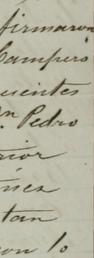 firmaron
Campero
uientes
n Pedro
rior
tan
on lo